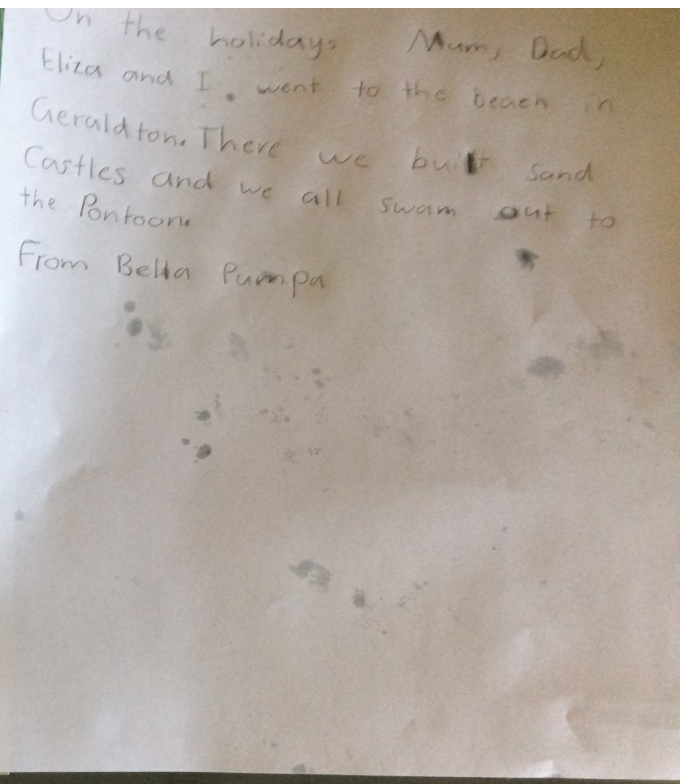 On the holidays Mum, Dad,
Eliza and I. went to the beach in
Geraldton. There we built sand
Castles and we all swam out to
the Pontoon.
From Bella Pumpa